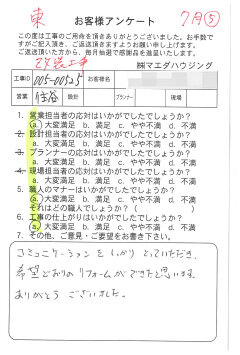 東
お客様アンケート
7月⑤
この度は工事のご用命を頂きありがとうございました。お手数で
すがご記入頂き、ご返送頂きますようお願い申し上げます。
ご返送頂いた方から、毎月抽選で感謝品を送呈いたします。
改装工事
㈱マエダハウジング
工事ID 005-00525 お客様名
営業 設計 プランナー 現場
1. 営業担当者の応対はいかがでしたでしょうか？
a. 大変満足 b. 満足 c. やや不満 d. 不満
2. 設計担当者の応対はいかがでしたでしょうか？
a. 大変満足 b. 満足 c. やや不満 d. 不満
3. プランナーの応対はいかがでしたでしょうか？
a. 大変満足 b. 満足 c. やや不満 d. 不満
4. 現場担当者の応対はいかがでしたでしょうか？
a. 大変満足 b. 満足 c. やや不満 d. 不満
5. 職人のマナーはいかがでしたでしょうか？
a. 大変満足 b. 満足 c. やや不満 d. 不満
それはどの職人でしょうか？（ ）
6. 工事の仕上がりはいかがでしたでしょうか？
a. 大変満足 b. 満足 c. やや不満 d. 不満
7. その他、ご意見・ご要望をお書き下さい。
コミュニケーションをしっかりとっていただき、
希望どおりのリフォームができたと思います。
ありがとうございました。